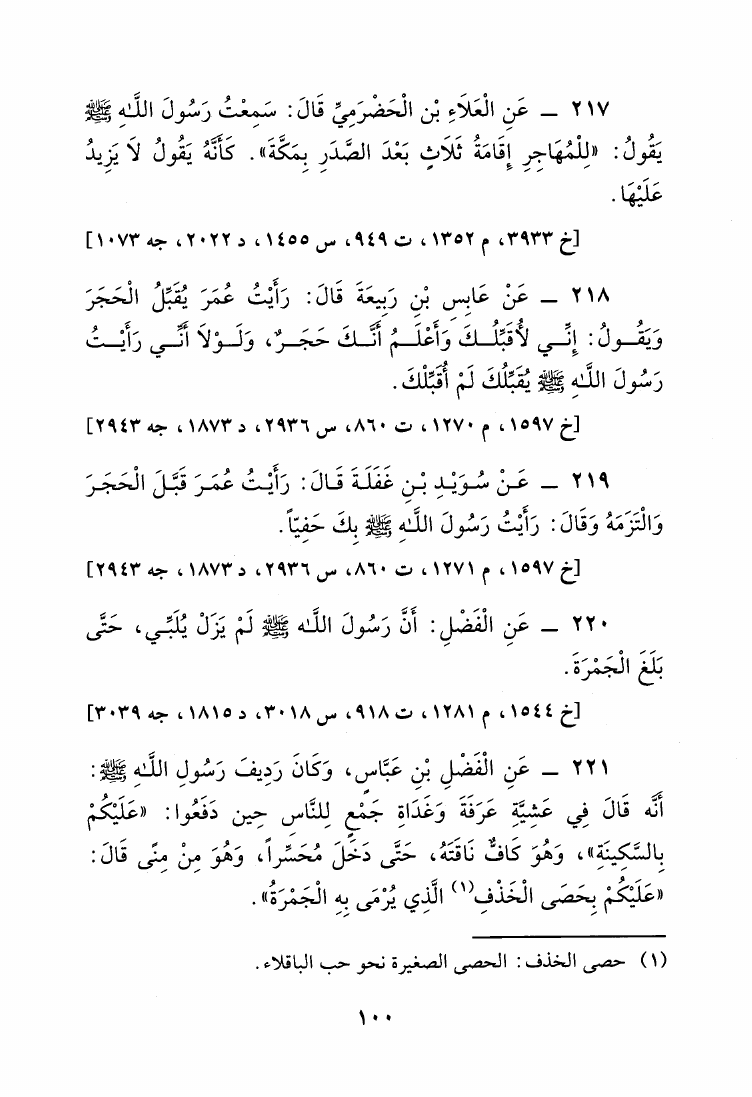 ٢١٧ ــ عَنِ الْعَلَاءِ بْنِ الْحَضْرَمِيِّ قَالَ: سَمِعْتُ رَسُولَ اللَّـٰهِ ﷺ
يَقُولُ: «لِلْمُهَاجِرِ إِقَامَةُ ثَلَاثٍ بَعْدَ الصَّدَرِ بِمَكَّةَ». كَأَنَّهُ يَقُولُ لَا يَزِيدُ
عَلَيْهَا.
[خ ٣٩٣٣، م ١٣٥٢، ت ٩٤٩، س ١٤٥٥، د ٢٠٢٢، جه ١٠٧٣]
٢١٨ ــ عَنْ عَابِسِ بْنِ رَبِيعَةَ قَالَ: رَأَيْتُ عُمَرَ يُقَبِّلُ الْحَجَرَ
وَيَقُـولُ: إِنِّـي لأُقَبِّلُـكَ وَأَعْلَـمُ أَنَّـكَ حَجَـرٌ، وَلَـوْلَا أَنِّـي رَأَيْـتُ
رَسُولَ اللَّـٰهِ ﷺ يُقَبِّلُكَ لَمْ أُقَبِّلْكَ.
[خ ١٥٩٧، م ١٢٧٠، ت ٨٦٠، س ٢٩٣٦، د ١٨٧٣، جه ٢٩٤٣]
٢١٩ ــ عَـنْ سُـوَيْـدِ بْـنِ غَفَلَـةَ قَـالَ: رَأَيْـتُ عُمَـرَ قَبَّـلَ الْحَجَـرَ
وَالْتَزَمَهُ وَقَالَ: رَأَيْتُ رَسُولَ اللَّـٰهِ ﷺ بِكَ حَفِيّاً.
[خ ١٥٩٧، م ١٢٧١، ت ٨٦٠، س ٢٩٣٦، د ١٨٧٣، جه ٢٩٤٣]
٢٢٠ ــ عَنِ الْفَضْلِ: أَنَّ رَسُولَ اللَّـٰه ﷺ لَمْ يَزَلْ يُلَبِّـي، حَتَّى
بَلَغَ الْجَمْرَةَ.
[خ ١٥٤٤، م ١٢٨١، ت ٩١٨، س ٣٠١٨، د ١٨١٥، جه ٣٠٣٩]
٢٢١ ــ عَنِ الْفَضْلِ بْنِ عَبَّاسٍ، وَكَانَ رَدِيفَ رَسُولِ اللَّـٰهِ ﷺ:
أَنَّه قَالَ فِي عَشِيَّةِ عَرَفَةَ وَغَدَاةِ جَمْعٍ لِلنَّاسِ حِين دَفَعُوا: «عَلَيْكُمْ
بِالسَّكِينَةِ»، وَهُوَ كَافٌّ نَاقَتَهُ، حَتَّى دَخَلَ مُحَسِّراً، وَهُوَ مِنْ مِنًى قَالَ:
«عَلَيْكُمْ بِحَصَى الْخَذْفِ(١) الَّذِي يُرْمَى بِهِ الْجَمْرَةُ».
(١) حصى الخذف: الحصى الصغيرة نحو حب الباقلاء.
١٠٠